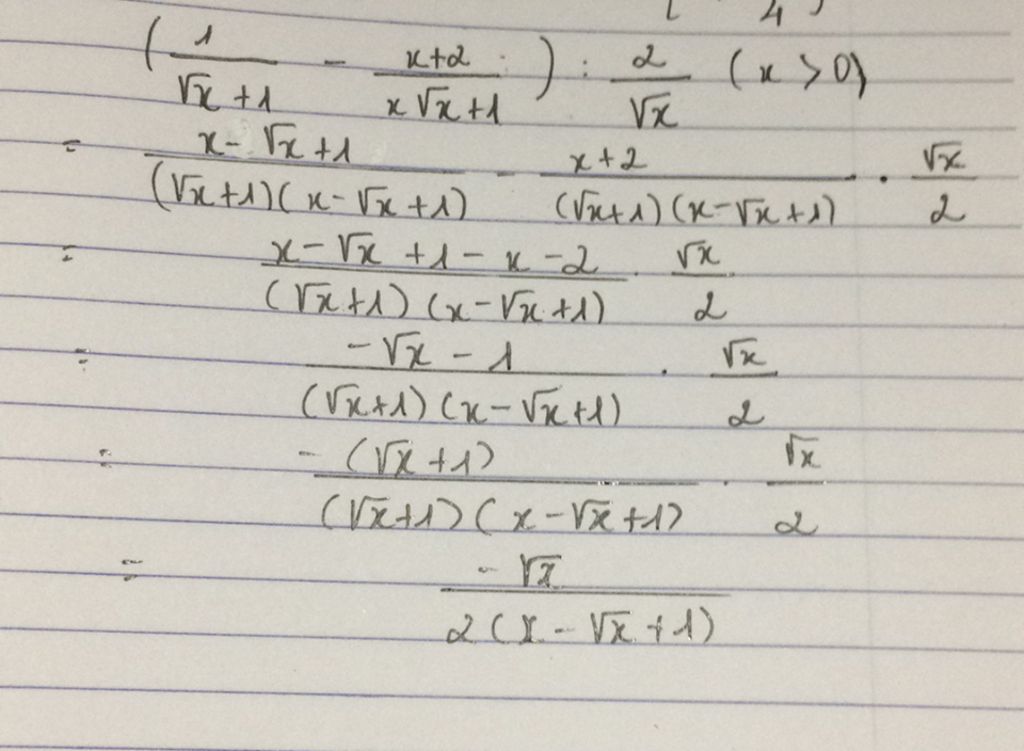 [ 4 ]
( 1/(√x +1) - (x+2)/(x√x +1) ) : 2/√x (x > 0)
= (x - √x +1)/((√x +1)(x - √x +1)) - (x+2)/((√x+1)(x-√x+1)) . √x/2
= (x - √x +1 - x - 2)/((√x +1)(x - √x +1)) . √x/2
= (-√x - 1)/((√x+1)(x - √x +1)) . √x/2
= (-(√x +1))/((√x+1)(x - √x +1)) . √x/2
= (-√x)/(2(x - √x +1))